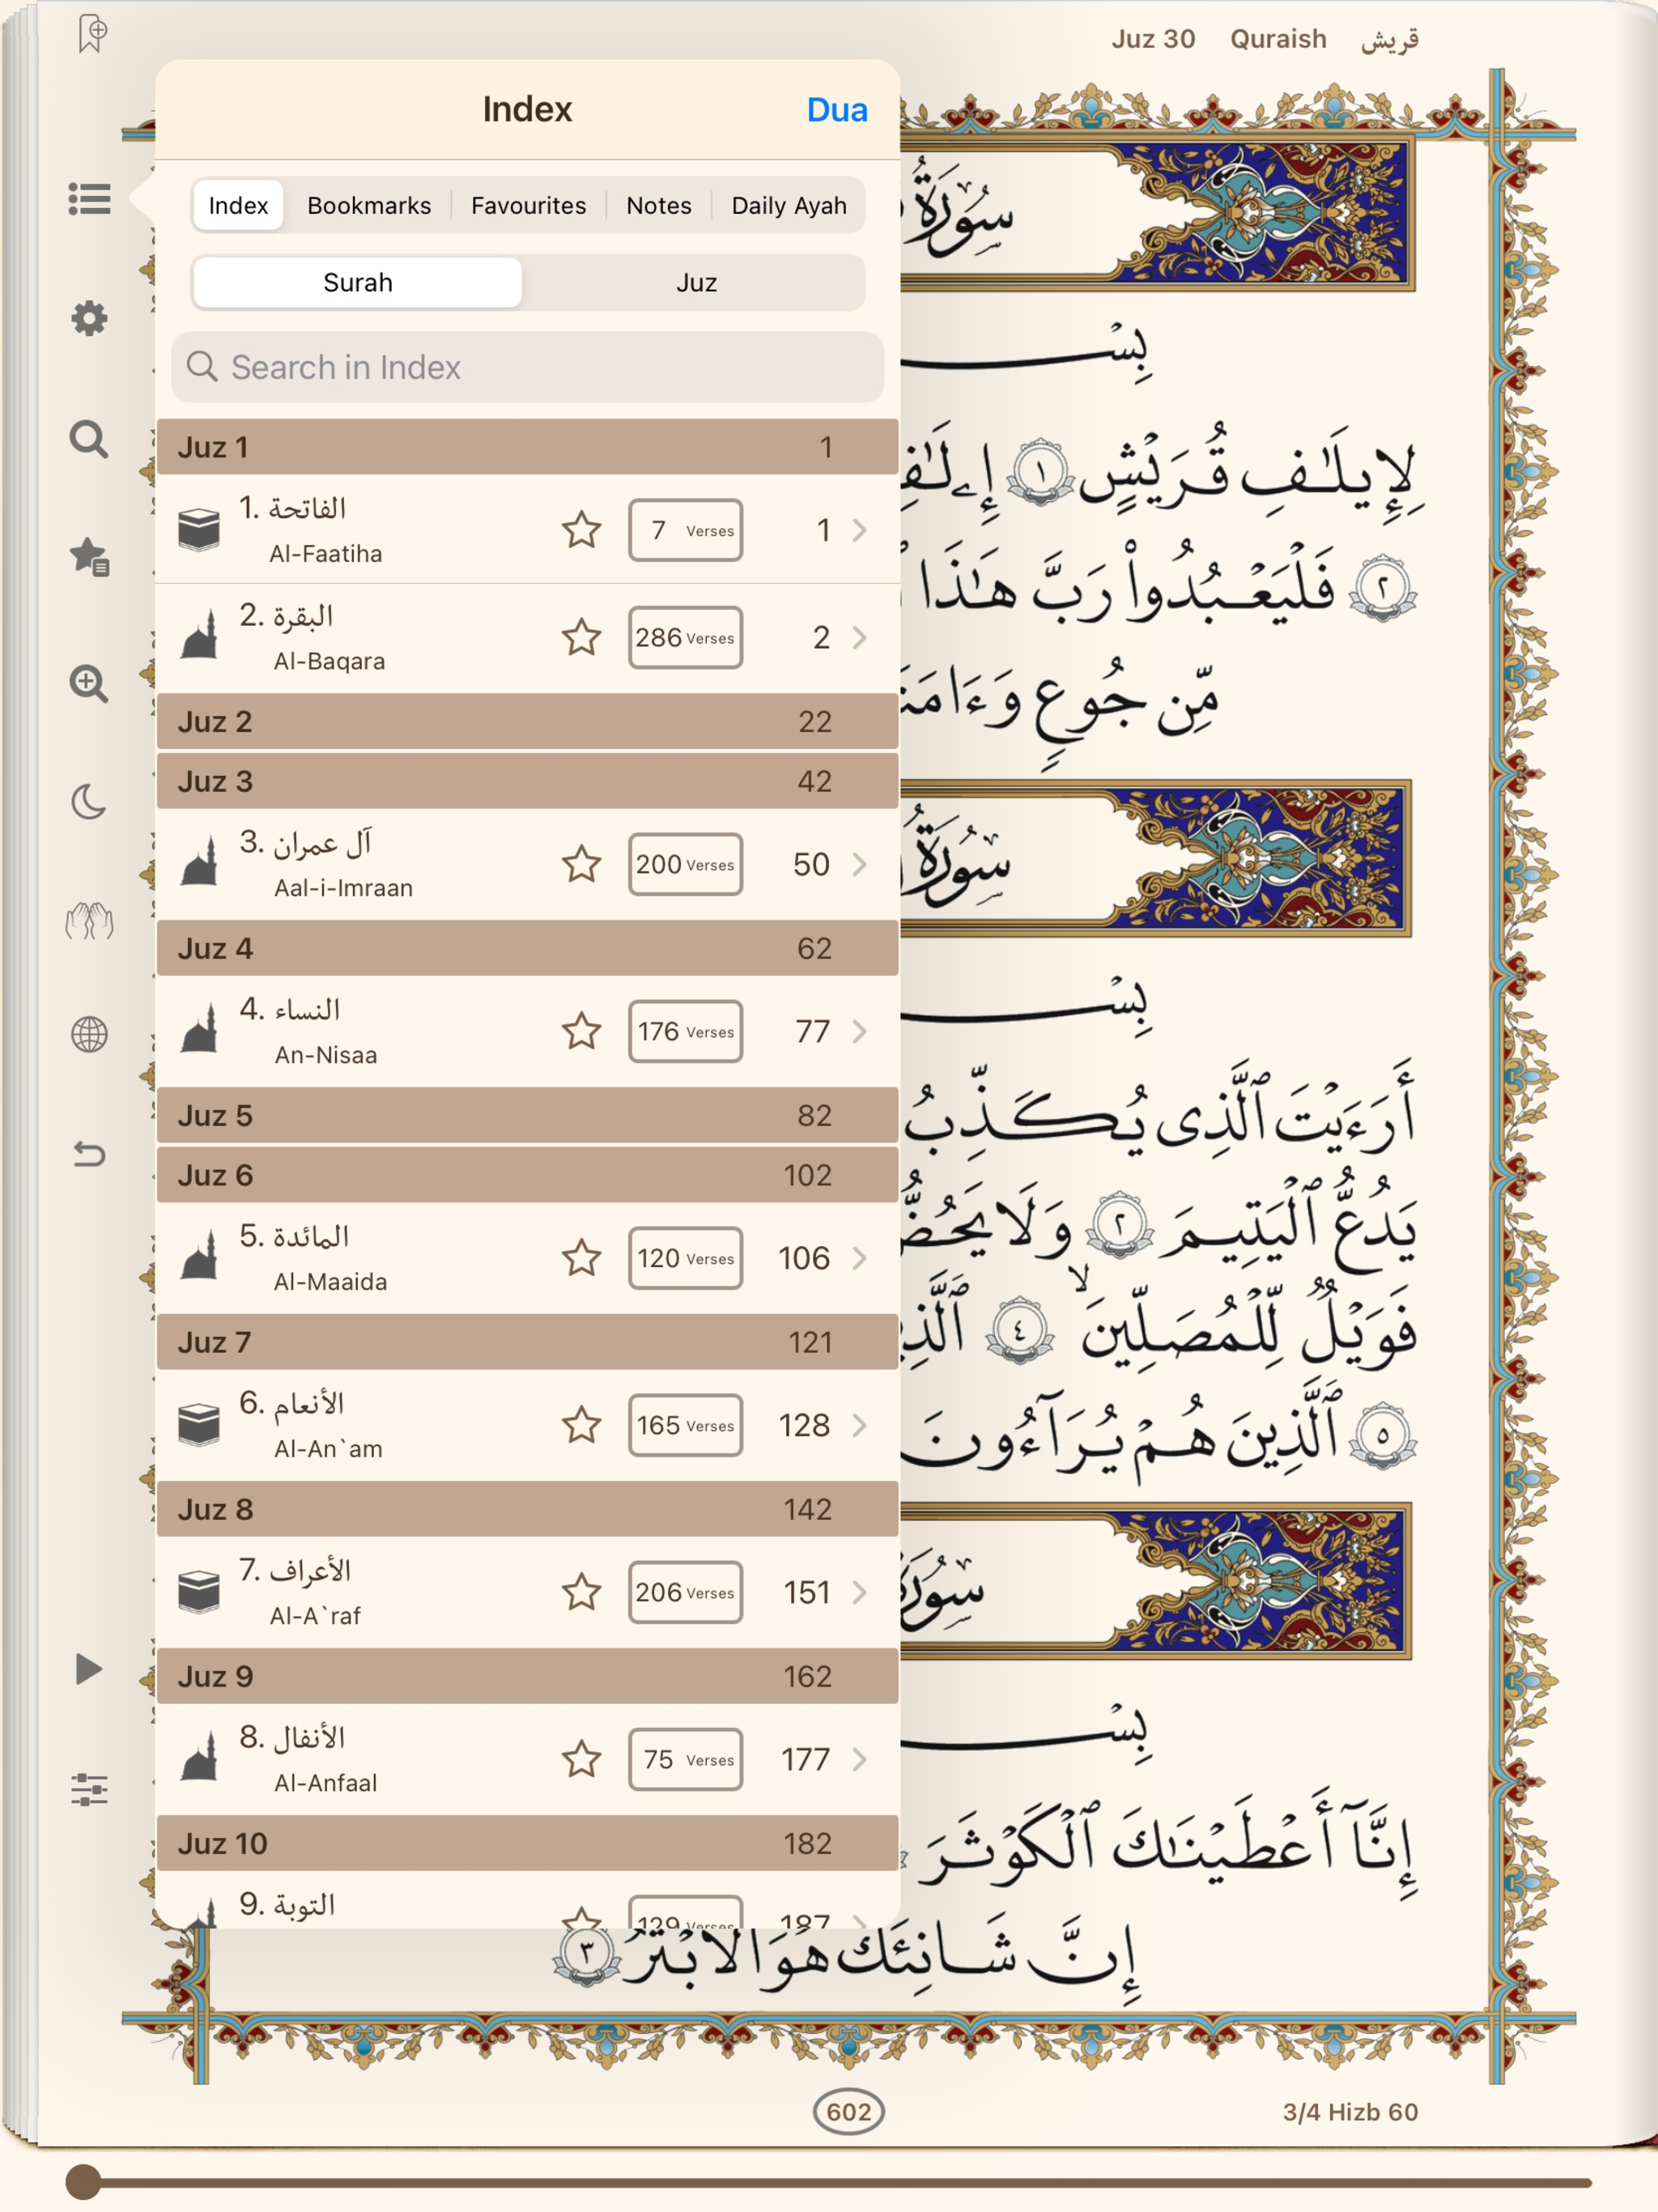 Juz 30 Quraish قريش
Index
Dua
Index Bookmarks Favourites Notes Daily Ayah
Surah Juz
Search in Index
Juz 1 1
1. الفاتحة
Al-Faatiha
7 Verses 1
2. البقرة
Al-Baqara
286 Verses 2
Juz 2 22
Juz 3 42
3. آل عمران
Aal-i-Imraan
200 Verses 50
Juz 4 62
4. النساء
An-Nisaa
176 Verses 77
Juz 5 82
Juz 6 102
5. المائدة
Al-Maaida
120 Verses 106
Juz 7 121
6. الأنعام
Al-An`am
165 Verses 128
Juz 8 142
7. الأعراف
Al-A`raf
206 Verses 151
Juz 9 162
8. الأنفال
Al-Anfaal
75 Verses 177
Juz 10 182
9. التوبة
129 Verses 187
سُورَةُ
لِإِيلَٰفِ قُرَيْشٍ ١
٢ فَلْيَعْبُدُوا۟ رَبَّ هَٰذَا
مِّن جُوعٍ
سُورَةُ
أَرَءَيْتَ ٱلَّذِى يُكَذِّبُ
يَدُعُّ ٱلْيَتِيمَ ٢ وَلَا يَحُضُّ
فَوَيْلٌ لِّلْمُصَلِّينَ ٤
٥ ٱلَّذِينَ هُمْ يُرَآءُونَ
إِنَّآ أَعْطَيْنَٰكَ ٱلْكَوْثَرَ
إِنَّ شَانِئَكَ هُوَ ٱلْأَبْتَرُ ٣
602
3/4 Hizb 60